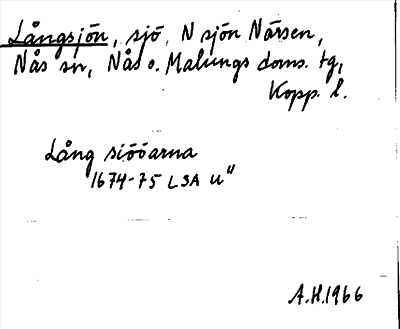 Långsjön, sjö, N sjön Närsen,
Nås sn, Nås o. Malungs doms. tg,
Kopp. l.
Lång siööarna
1674-75 LSA U"
A.H.1966